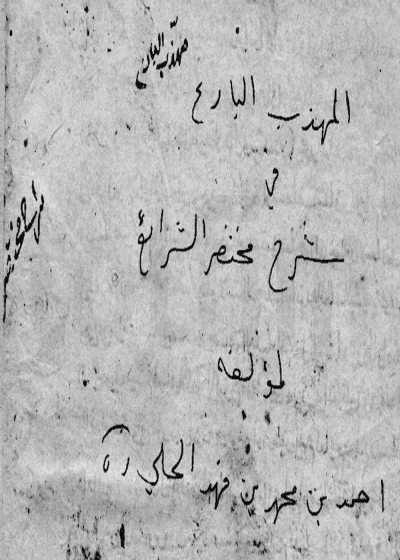 مهذب البارع
المهذب البارع
في
شرح مختصر الشرائع
لمؤلفه
احمد بن محمد بن فهد الحلي ره